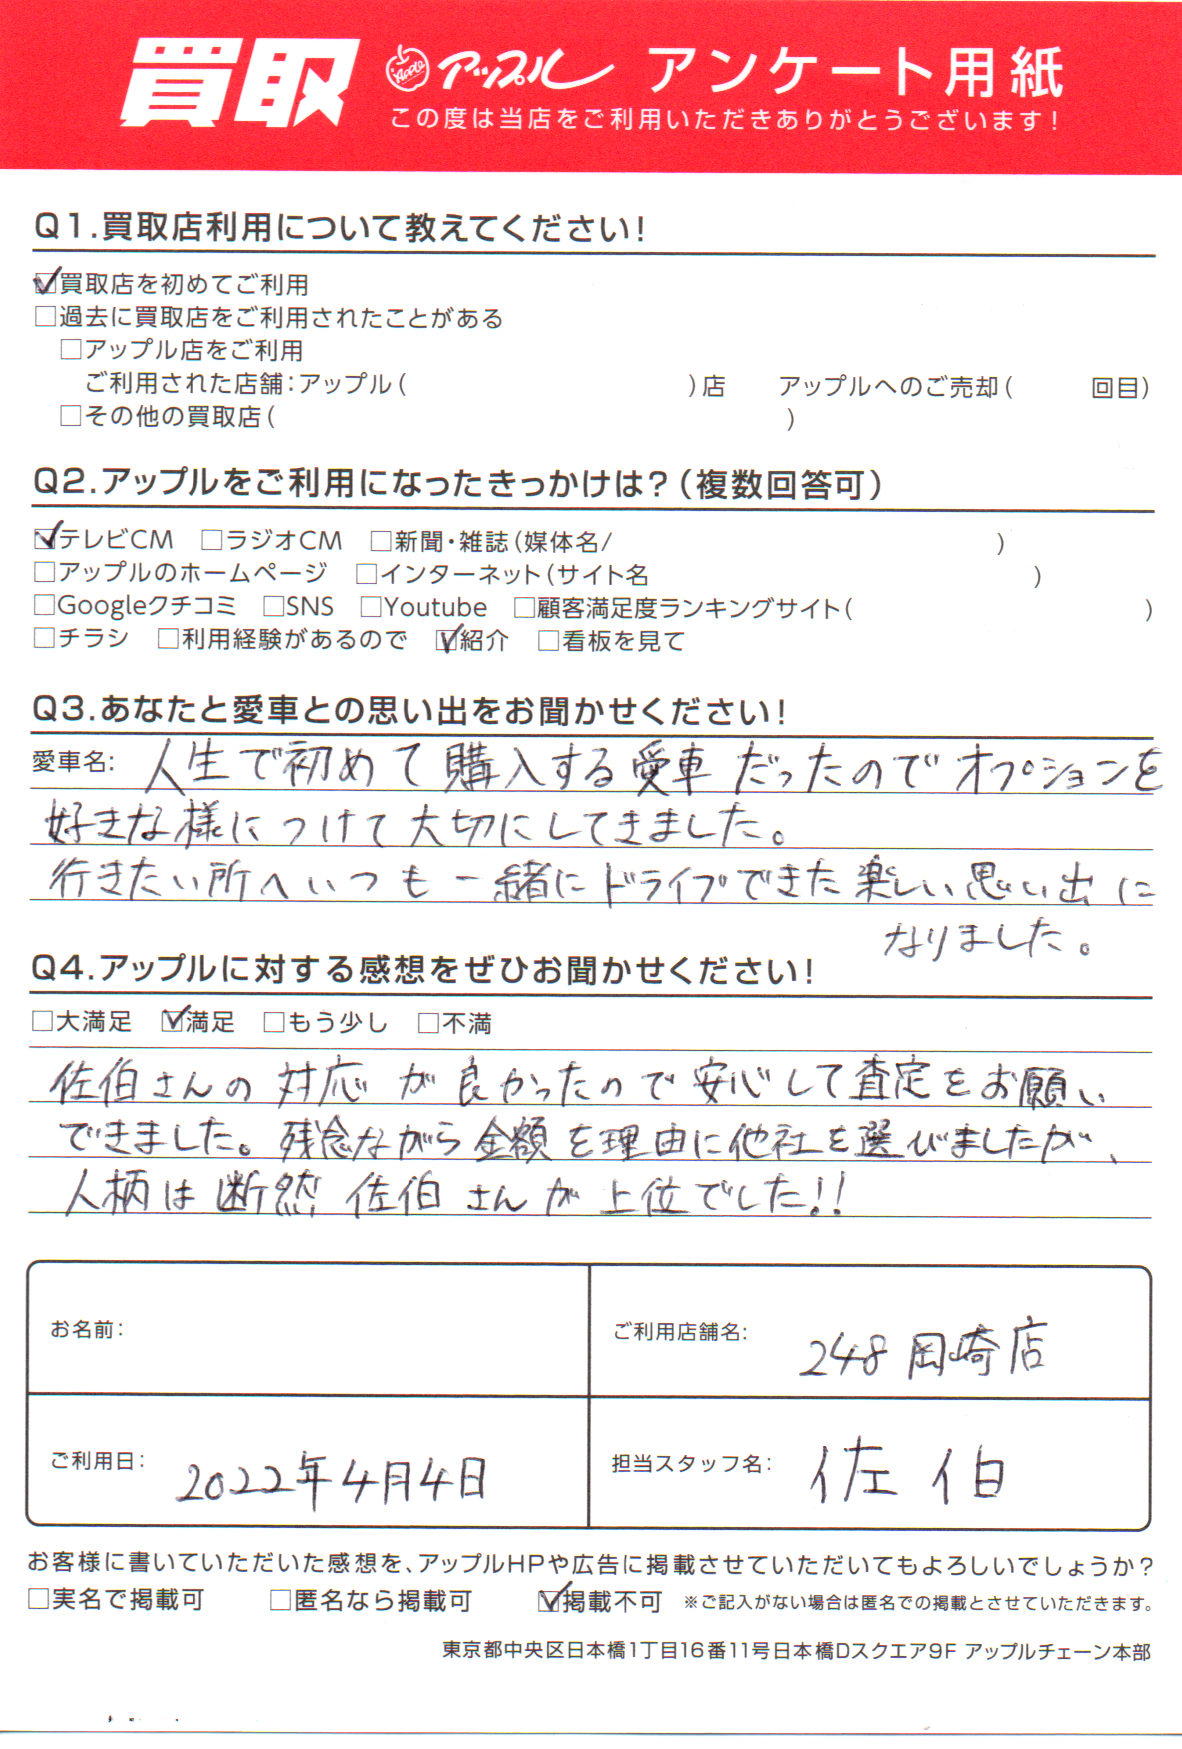 買取 Apple アップル アンケート用紙
この度は当店をご利用いただきありがとうございます!
Q1.買取店利用について教えてください!
☑買取店を初めてご利用
□過去に買取店をご利用されたことがある
□アップル店をご利用
ご利用された店舗:アップル( )店 アップルへのご売却( 回目)
□その他の買取店( )
Q2.アップルをご利用になったきっかけは?(複数回答可)
☑テレビCM □ラジオCM □新聞・雑誌(媒体名/ )
□アップルのホームページ □インターネット(サイト名 )
□Googleクチコミ □SNS □Youtube □顧客満足度ランキングサイト( )
□チラシ □利用経験があるので ☑紹介 □看板を見て
Q3.あなたと愛車との思い出をお聞かせください!
愛車名: 人生で初めて購入する愛車だったのでオプションを
好きな様につけて大切にしてきました。
行きたい所へいつも一緒にドライブできた楽しい思い出に
なりました。
Q4.アップルに対する感想をぜひお聞かせください!
□大満足 ☑満足 □もう少し □不満
佐伯さんの対応が良かったので安心して査定をお願い
できました。残念ながら金額を理由に他社を選びましたが、
人柄は断然佐伯さんが上位でした!!
お名前: ご利用店舗名: 248岡崎店
ご利用日: 2022年4月4日 担当スタッフ名: 佐伯
お客様に書いていただいた感想を、アップルHPや広告に掲載させていただいてもよろしいでしょうか?
□実名で掲載可 □匿名なら掲載可 ☑掲載不可 ※ご記入がない場合は匿名での掲載とさせていただきます。
東京都中央区日本橋1丁目16番11号日本橋Dスクエア9F アップルチェーン本部